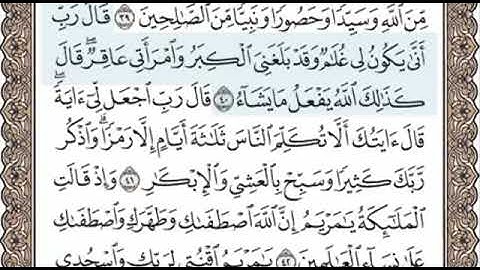 مِّنَ ٱللَّهِ وَسَيِّدًا وَحَصُورًا وَنَبِيًّا مِّنَ ٱلصَّٰلِحِينَ ٣٩ قَالَ رَبِّ
أَنَّىٰ يَكُونُ لِى غُلَٰمٌ وَقَدْ بَلَغَنِىَ ٱلْكِبَرُ وَٱمْرَأَتِى عَاقِرٌ ۖ قَالَ
كَذَٰلِكَ ٱللَّهُ يَفْعَلُ مَا يَشَآءُ ٤٠ قَالَ رَبِّ ٱجْعَل لِّىٓ ءَايَةً ۖ
قَالَ ءَايَتُكَ أَلَّا تُكَلِّمَ ٱلنَّاسَ ثَلَٰثَةَ أَيَّامٍ إِلَّا رَمْزًا ۗ وَٱذْكُر
رَّبَّكَ كَثِيرًا وَسَبِّحْ بِٱلْعَشِىِّ وَٱلْإِبْكَٰرِ ٤١ وَإِذْ قَالَتِ
ٱلْمَلَٰٓئِكَةُ يَٰمَرْيَمُ إِنَّ ٱللَّهَ ٱصْطَفَىٰكِ وَطَهَّرَكِ وَٱصْطَفَىٰكِ
عَلَىٰ نِسَآءِ ٱلْعَٰلَمِينَ ٤٢ يَٰمَرْيَمُ ٱقْنُتِى لِرَبِّكِ وَٱسْجُدِى